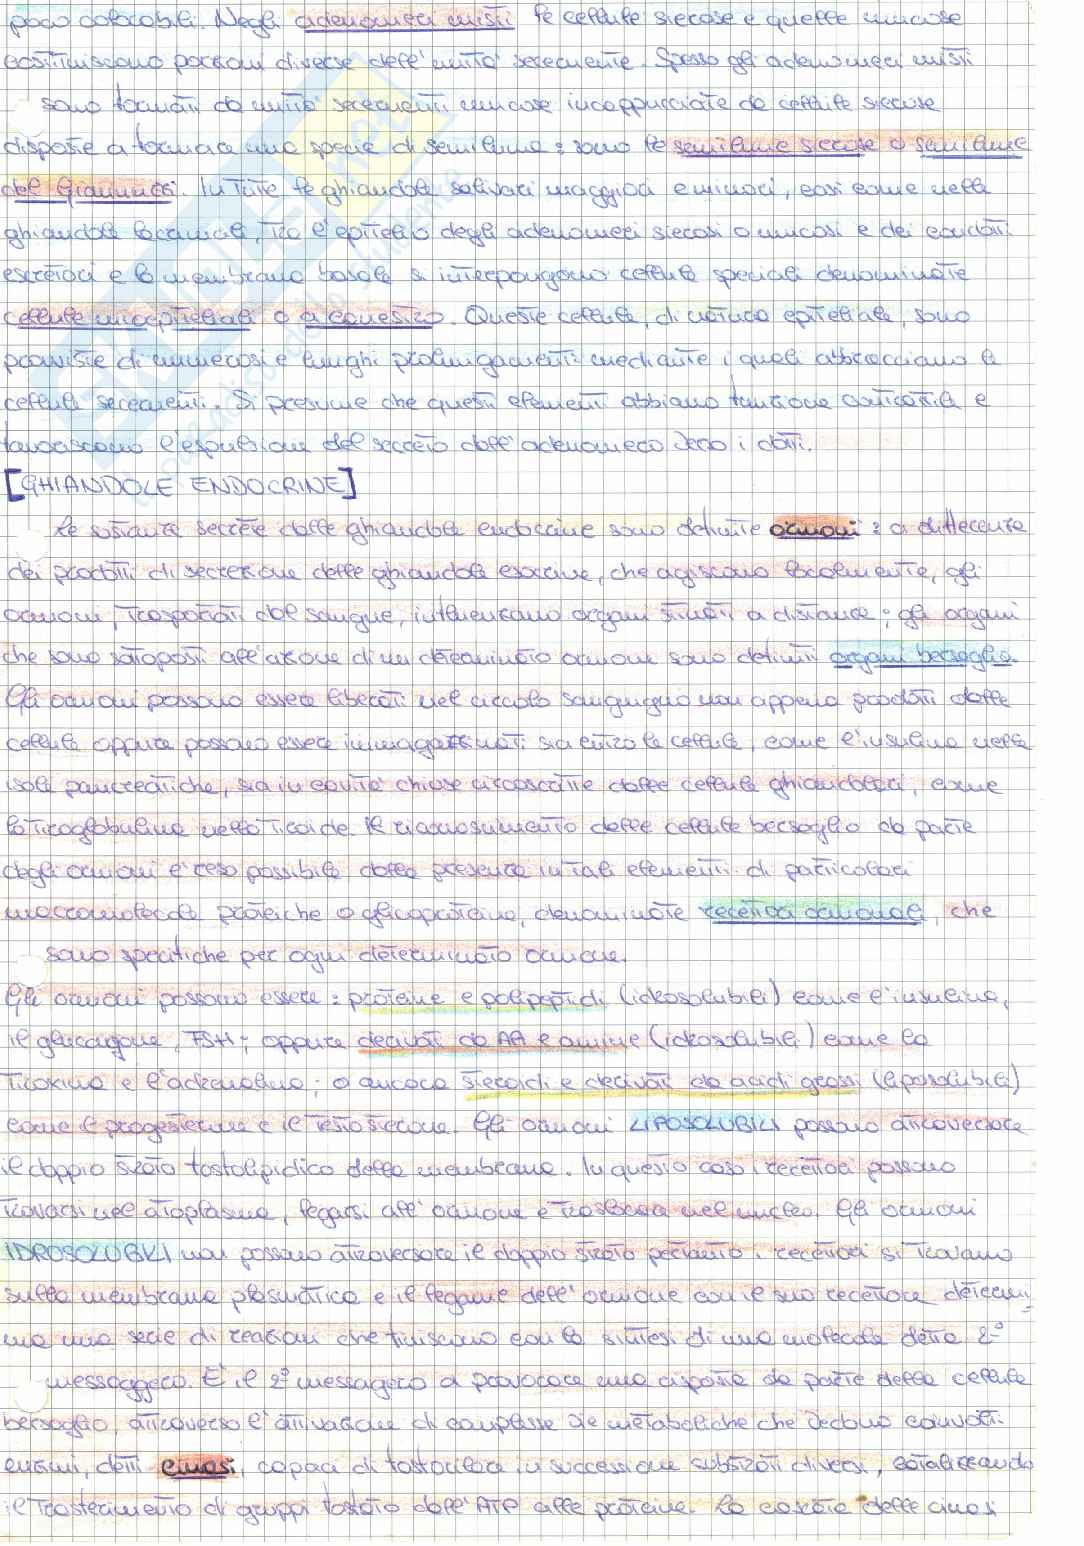 poco colorabili. Negli adenomeri misti le cellule sierose e quelle mucose
costituiscono porzioni diverse dell'unità secernente. Spesso gli adenomeri misti
sono formati da unità secernenti mucose incappucciate da cellule sierose
disposte a formare una specie di semilune: sono le semilune sierose o semilune
del Giannuzzi. In tute le ghiandole salivari maggiori e minori, così come nelle
ghiandole lacrimali, tra l'epitelio degli adenomeri sierosi o mucosi e dei condotti
escretori e la membrana basale si interpongono cellule speciali denominate
cellule mioepiteliali o a canestro. Queste cellule, di natura epiteliale, sono
provviste di numerosi e lunghi prolungamenti mediante i quali abbracciano le
cellule secernenti. Si presume che questi elementi abbiano funzione contrattile e
favoriscono l'espulsione del secreto dall'adenomero verso i dotti.
[GHIANDOLE ENDOCRINE]
Le sostanze secrete dalle ghiandole endocrine sono definite ormoni: a differenza
dei prodotti di secrezione delle ghiandole esocrine, che agiscono localmente, gli
ormoni, trasportati dal sangue, influenzano organi situati a distanza; gli organi
che sono sottoposti all'azione di un determinato ormone sono definiti organi bersaglio.
Gli ormoni possono essere liberati nel circolo sanguigno non appena prodotti dalle
cellule oppure possono essere immagazzinati sia entro le cellule, come l'insulina nelle
isole pancreatiche, sia in cavità chiuse circoscritte dalle cellule ghiandolari, come
la tiroglobulina nella tiroide. Il riconoscimento delle cellule bersaglio da parte
degli ormoni è reso possibile dalla presenza in tali elementi di particolari
macromolecole proteiche o glicoproteine, denominate recettori ormonali, che
sono specifiche per ogni determinato ormone.
Gli ormoni possono essere: proteine e polipeptidi (idrosolubili) come l'insulina,
il glucagone, FSH; oppure derivati da AA e amine (idrosolubili) come la
tiroxina e l'adrenalina; o ancora steroidi e derivati da acidi grassi (liposolubili)
come il progesterone e il testosterone. Gli ormoni LIPOSOLUBILI possono attraversare
il doppio strato fosfolipidico della membrana. In questo caso i recettori possono
trovarsi nel citoplasma, legarsi all'ormone e traslocare nel nucleo. Gli ormoni
IDROSOLUBILI non possono attraversare il doppio strato pertanto i recettori si trovano
sulla membrana plasmatica e il legame dell'ormone con il suo recettore determi-
na una serie di reazioni che finiscono con la sintesi di una molecola detta 2°
messaggero. È il 2° messagero a provocare una risposta da parte delle cellule
bersaglio, attraverso l'attivazione di complesse vie metaboliche che vedono coinvolti
enzimi, detti cinasi, capaci di fosforilare in successione substrati diversi, catalizzando
il trasferimento di gruppi fosfato dall'ATP alle proteine. La cascata delle cinasi